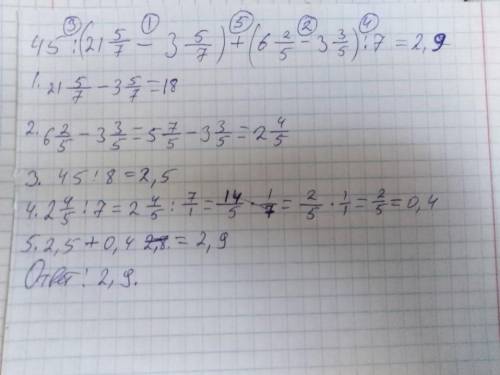 ③ ① ⑤ ② ④
45 : (21 5/7 - 3 5/7) + (6 2/5 - 3 3/5) : 7 = 2,9
1. 21 5/7 - 3 5/7 = 18
2. 6 2/5 - 3 3/5 = 5 7/5 - 3 3/5 = 2 4/5
3. 45 : 8 = 2,5
4. 2 4/5 : 7 = 2 4/5 : 7/1 = 14/5 · 1/7 = 2/5 · 1/1 = 2/5 = 0,4
5. 2,5 + 0,4 = 2,9
Ответ: 2,9.